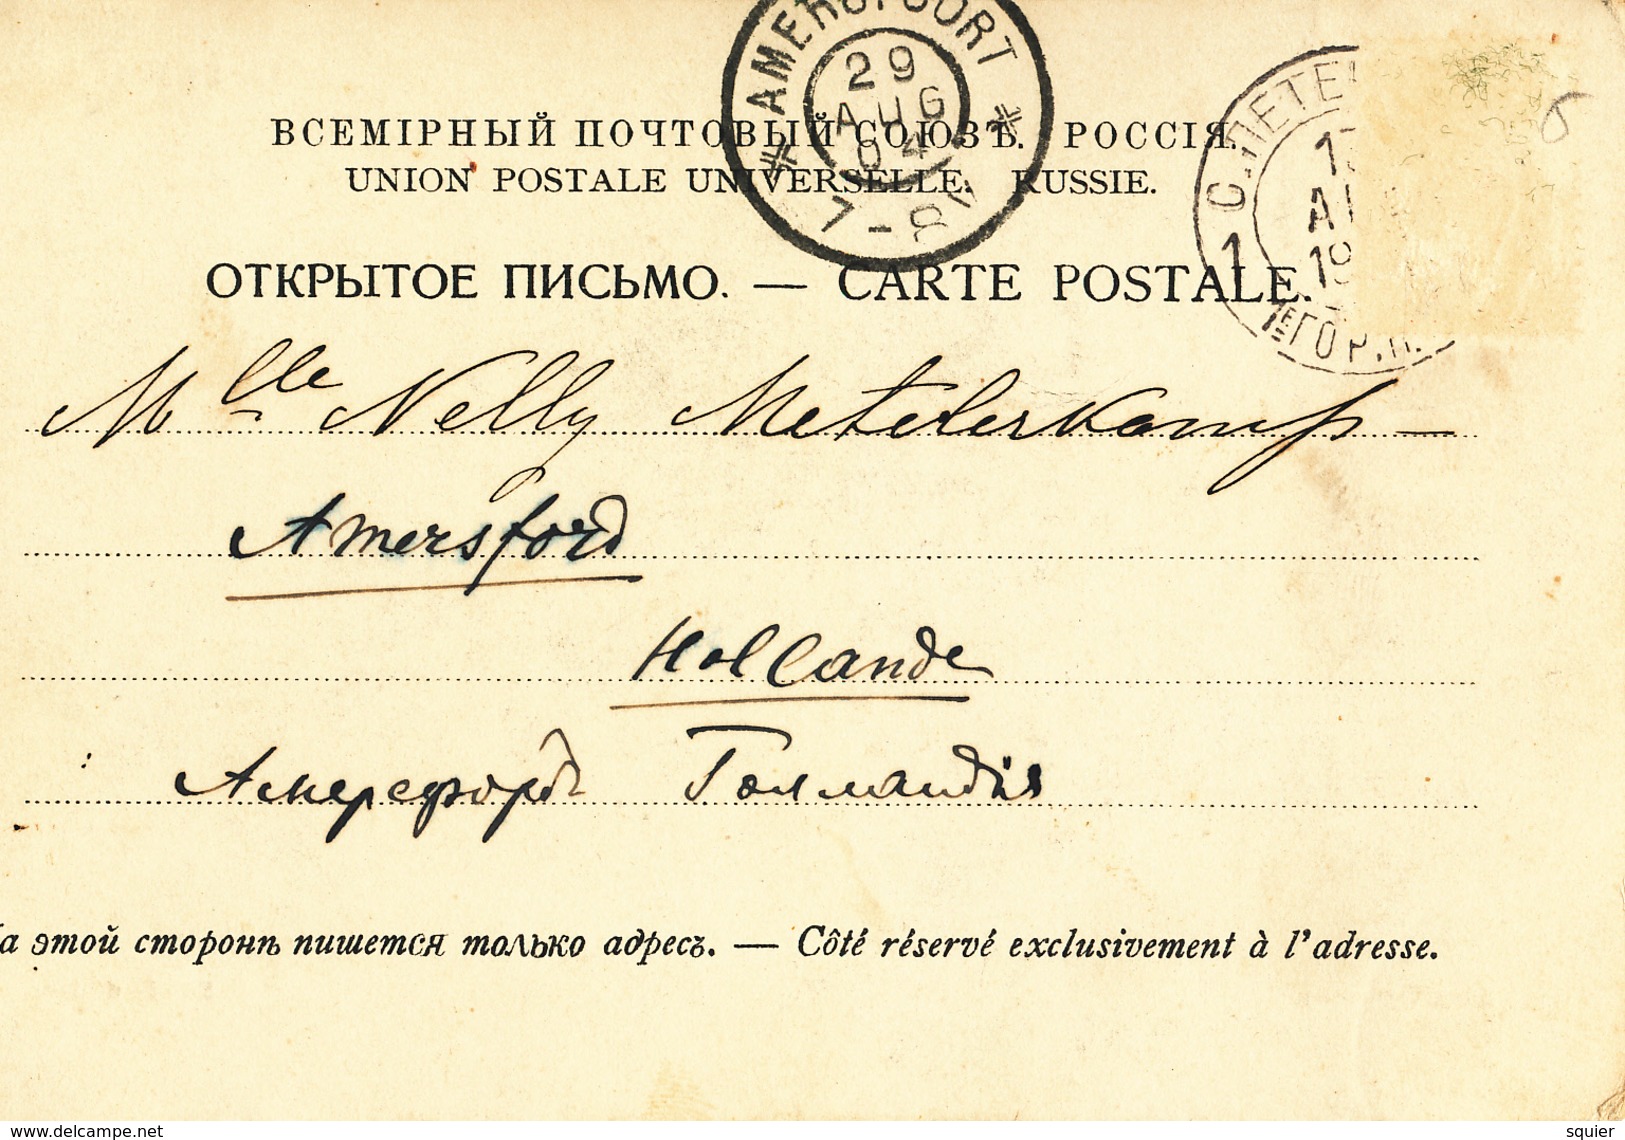 AMERSFOORT
29
AUG
04
7-8V
С.ПЕТЕ
1
19
1
1Е ГОР.П.
ВСЕМІРНЫЙ ПОЧТОВЫЙ СОЮЗЪ. РОССІЯ.
UNION POSTALE UNIVERSELLE. RUSSIE.
ОТКРЫТОЕ ПИСЬМО. — CARTE POSTALE.
Mlle Nelly Metelerkamp —
Amersford
Hollande
Амерсфордъ Голландія
На этой сторонѣ пишется только адресъ. — Côté réservé exclusivement à l'adresse.
www.delcampe.net
squier